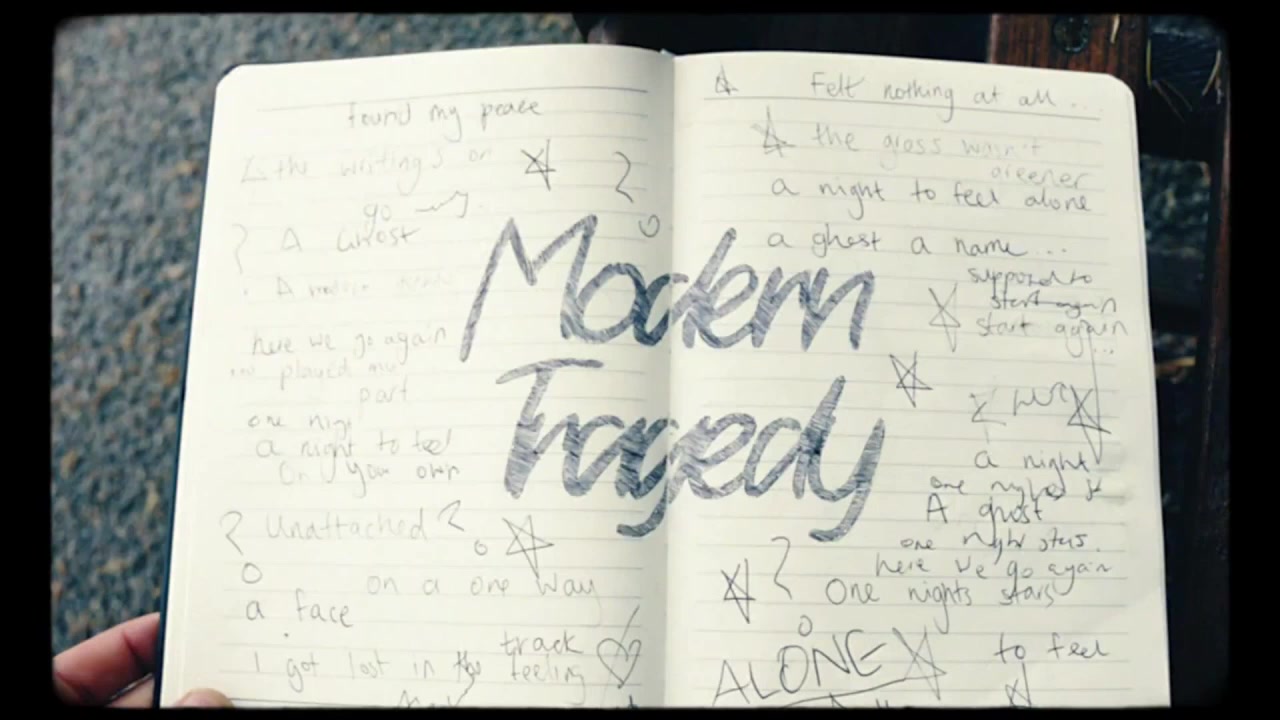 found my peace
the writing's on
go
A Ghost
A modern
here we go again
played my
part
one nigh
a night to feel
On your own
Unattached
on a one way
a face
track
I got lost in the feeling
Modern
Tragedy
Felt nothing at all ...
the grass wasn't
greener
a night to feel alone
a ghost a name...
supposed to
start again
start again
...
a night
one night
A ghost
one night stars.
here we go again
One nights stars
to feel
ALONE